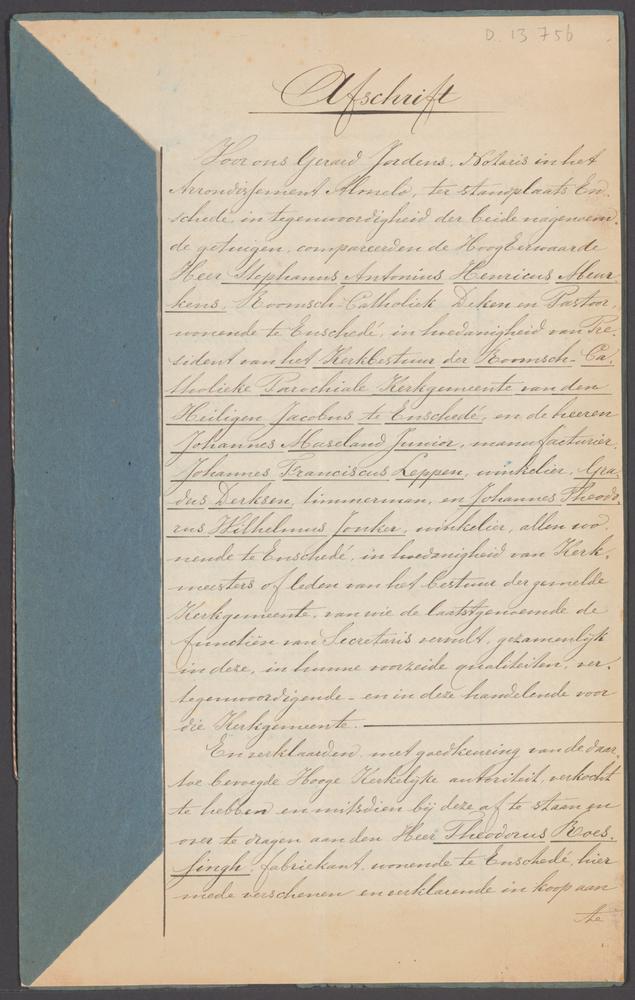 D. 13756
Afschrift
Voor ons Gerard Jordens, Notaris in het
Arrondissement Almelo, ter standplaats En-
schede, in tegenwoordigheid der beide nagenoem-
de getuigen, compareerden de HoogEerwaarde
Heer Stephanus Antonius Henricus Meur-
kens, Roomsch-Catholiek Deken en Pastoor,
wonende te Enschedé, in hoedanigheid van Pre-
sident van het Kerkbestuur der Roomsch-Ca-
tholieke Parochiale Kerkgemeente van den
Heiligen Jacobus te Enschedé, en de heeren
Johannes Maseland Junior, manufacturier,
Johannes Franciscus Leppen, winkelier, Gra-
dus Derksen, timmerman, en Johannes Theodo-
rus Wilhelmus Jonker, winkelier, allen wo-
nende te Enschedé, in hoedanigheid van Kerk-
meesters of leden van het bestuur der gemelde
Kerkgemeente, van wie de laatstgenoemde de
functiën van Secretaris vervult, gezamenlijk
in deze, in hunne voorzeide qualiteiten, ver-
tegenwoordigende - en in deze handelende voor
die Kerkgemeente.
En verklaarden, met goedkeuring van de daar-
toe bevoegde Hooge Kerkelijke autoriteit, verkocht
te hebben en mitsdien bij deze af te staan en
over te dragen aan den Heer Theodorus Roes-
singh, fabriekant, wonende te Enschedé, hier
mede verschenen en verklarende in koop aan
te